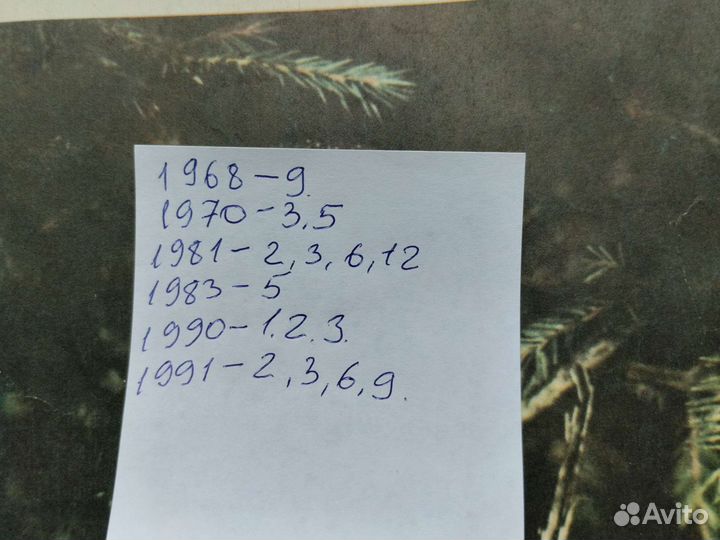 1968-9.
1970-3,5
1981-2,3,6,12
1983-5
1990-1.2.3.
1991-2,3,6,9.
Avito